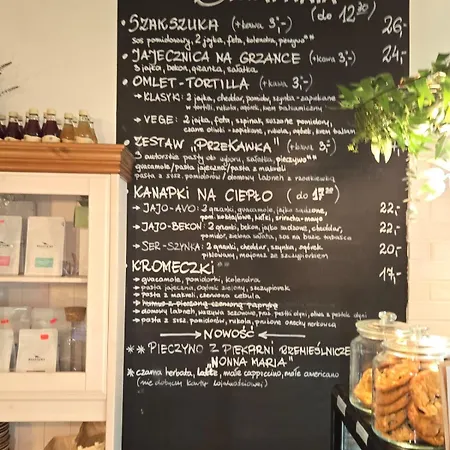 (do 12³⁰)
• SZAKSZUKA (+kawa 3,-) 26,-
sos pomidorowy, 2 jajka, feta, kolendra, pieczywo**
• JAJECZNICA NA GRZANCE (+kawa 3,-) 24,-
3 jajka, bekon, grzanka, sałatka
• OMLET-TORTILLA (+kawa 3,-)
→ KLASYK: 2 jajka, cheddar, pomidor, szynka - zapiekane
w tortilli, rukola, ogórek, krem balsamiczny
→ VEGE: 2 jajka, feta, szpinak, suszone pomidory,
czarne oliwki - zapiekane, rukola, ogórek, krem balsam
• ZESTAW "PRZEKAWKA" (+kawa 3,-)
3 autorskie pasty do wyboru, sałatka, pieczywo**
guacamole/pasta jajeczna/pasta z makreli
pasta z susz. pomidorów/domowy labneh z rzodkiewką
• KANAPKI NA CIEPŁO (do 17³⁰)
→ JAJO-AVO: 2 grzanki, guacamole, jajko sadzone, 22,-
pom. koktajlowe, kiełki, sriracha-mayo
→ JAJO-BEKON: 2 grzanki, bekon, jajko sadzone, cheddar, 22,-
pomidor, zielona sałata, sos na bazie tabasco
→ SER-SZYNKA: 2 grzanki, cheddar, szynka, ogórek 20,-
piklowany, majonez ze szczypiorkiem
• KROMECZKI** 17,-
→ guacamole, pomidorki, kolendra
→ pasta jajeczna, ogórek zielony, szczypiorek
→ pasta z makreli, czerwona cebula
→ domowy labneh, warzywa sezonowe,
→ pasta z susz. pomidorów, rukola, prażone orzechy nerkowca
→ NOWOŚĆ ←
** PIECZYWO Z PIEKARNI RZEMIEŚLNICZEJ
"NONNA MARIA"
* czarna herbata, latte, małe cappuccino, małe americano
(nie dotyczy kawy lojalnościowej)